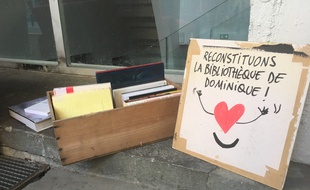 RECONSTITUONS
LA BIBLIOTHÈQUE DE
DOMINIQUE !